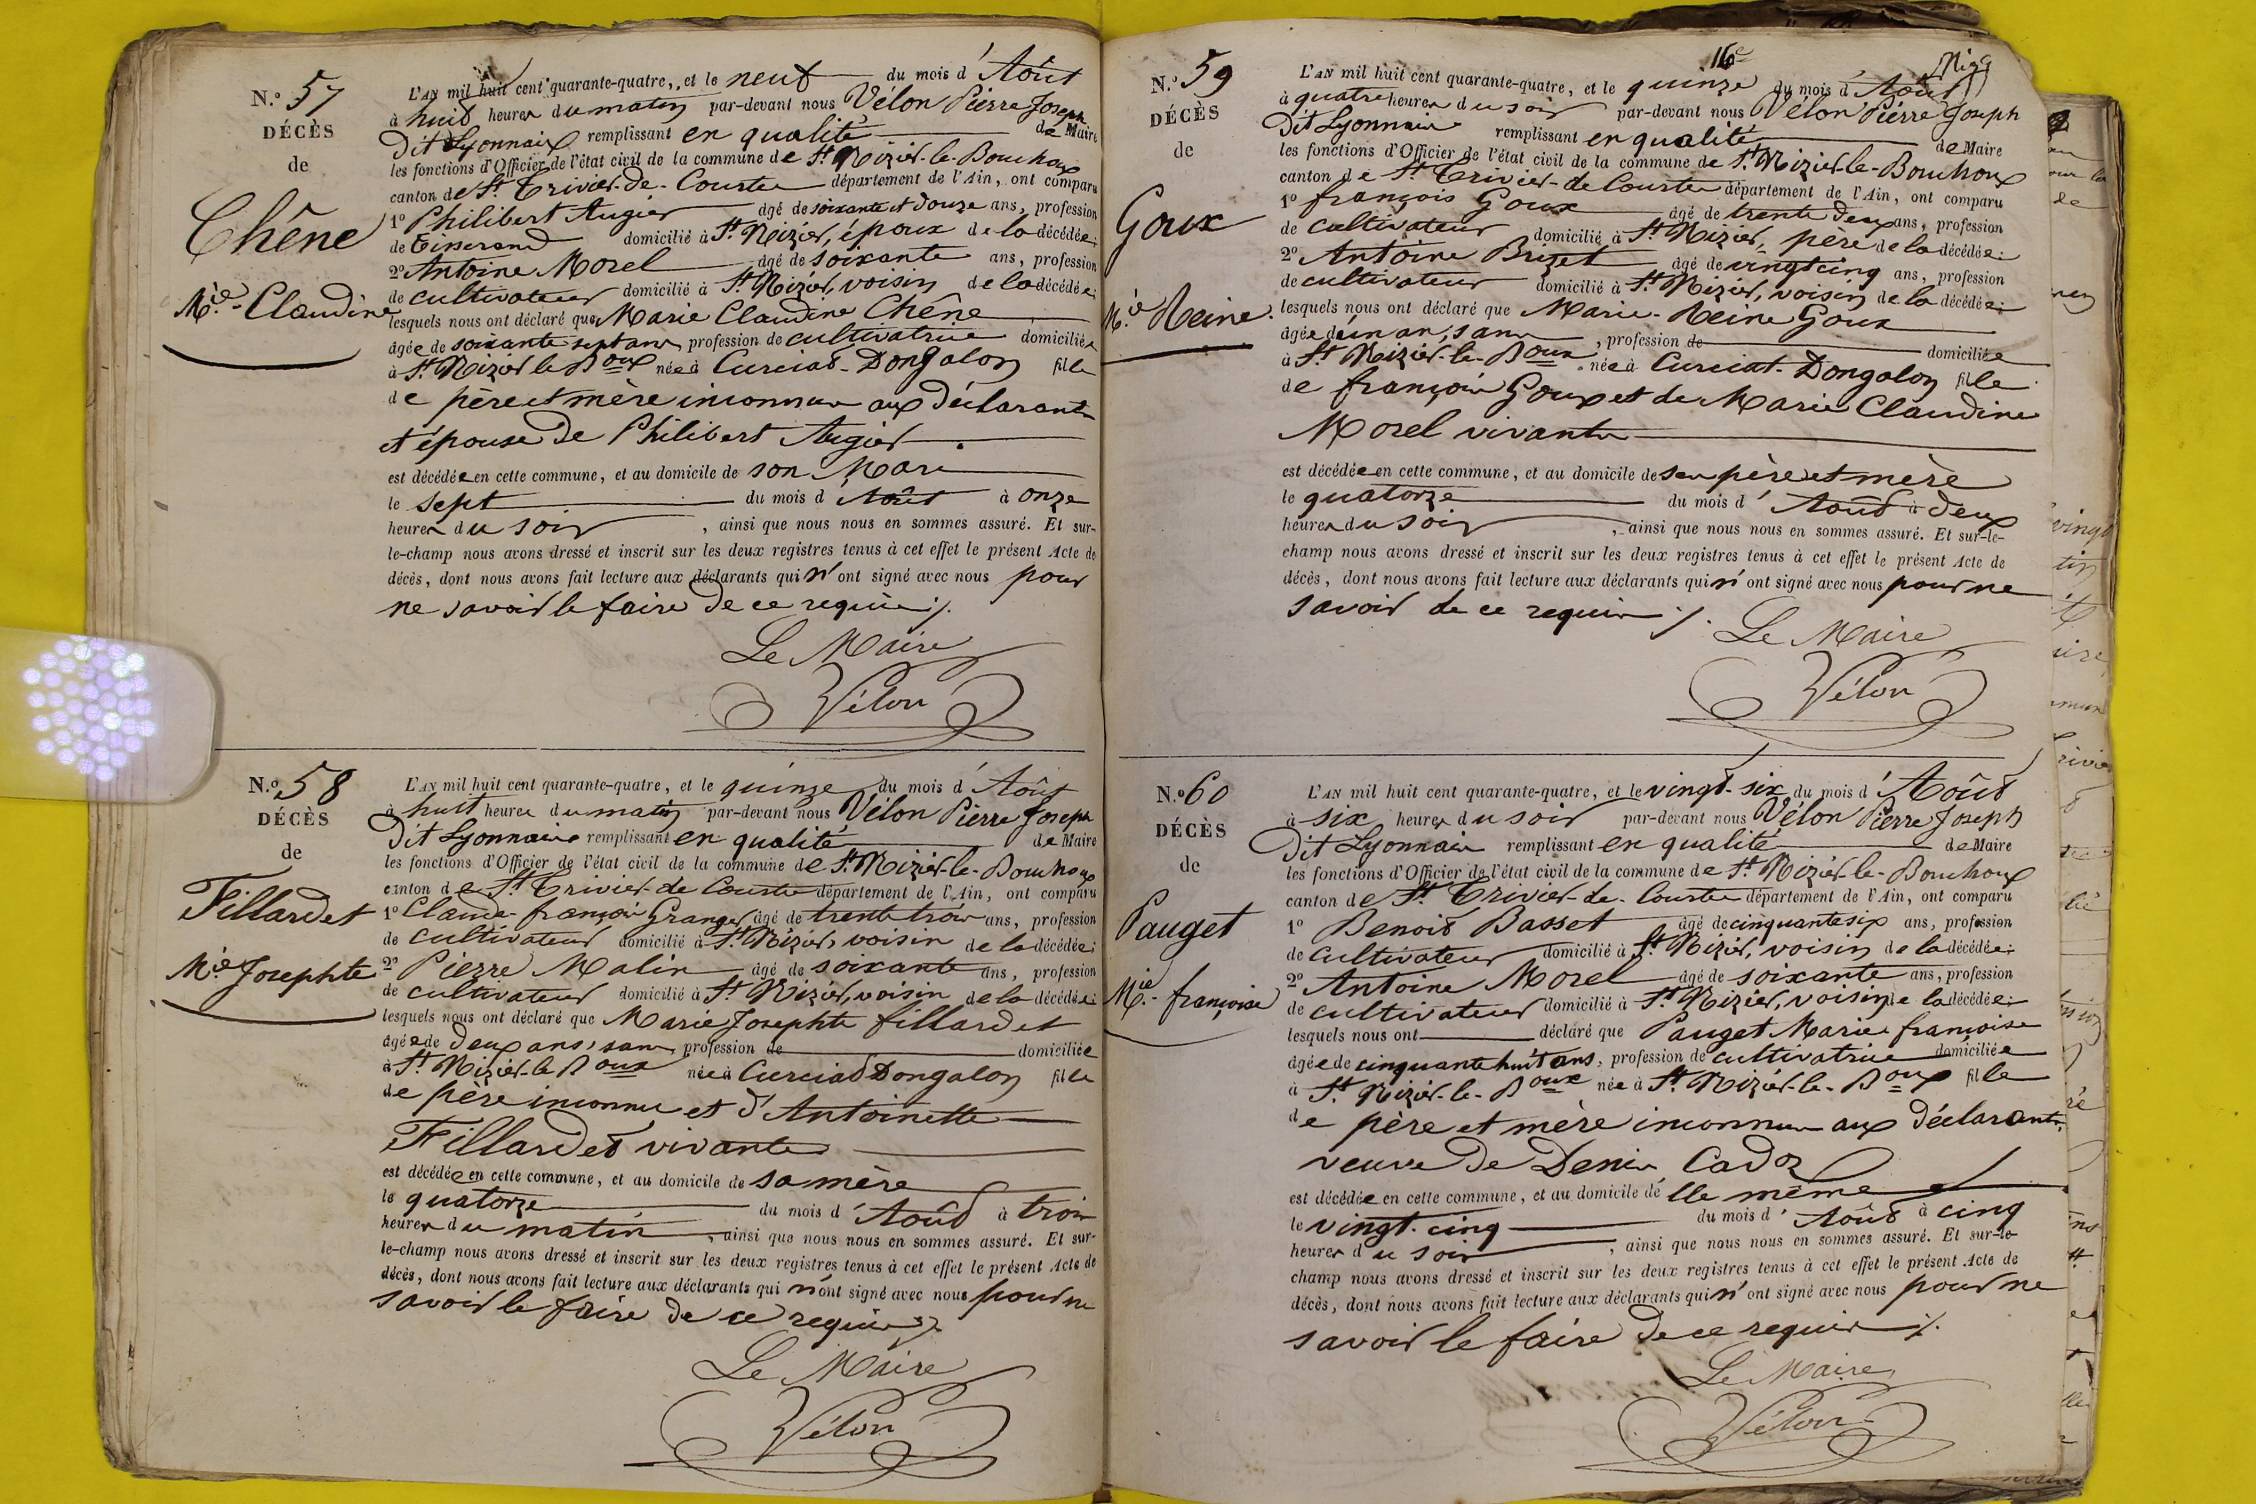 N.° 57
DÉCÈS
de
Chêne
M.ie Claudine
L'AN mil huit cent quarante-quatre, et le neuf du mois d'Août
à huit heures du matin par-devant nous Vélon Pierre Joseph
dit Lyonnais remplissant en qualité de Maire
les fonctions d'Officier de l'état civil de la commune de St Nizier-le-Bouchoux
canton de St Trivier-de-Courtes département de l'Ain, ont comparu
1° Philibert Augier âgé de soixante et douze ans, profession
de tisserand domicilié à St Nizier, époux de la décédée;
2° Antoine Morel âgé de soixante ans, profession
de cultivateur domicilié à St Nizier, voisin de la décédée;
lesquels nous ont déclaré que Marie Claudine Chêne
âgée de soixante sept ans, profession de cultivatrice domiciliée
à St Nizier le Boux née à Curciat-Dongalon fille
de père et mère inconnus aux déclarants
et épouse de Philibert Augier
est décédée en cette commune, et au domicile de son Mari
le sept du mois d'Août à onze
heures du soir, ainsi que nous nous en sommes assuré. Et sur-
le-champ nous avons dressé et inscrit sur les deux registres tenus à cet effet le présent Acte de
décès, dont nous avons fait lecture aux déclarants qui n'ont signé avec nous pour
ne savoir le faire de ce requis ./.
Le Maire
Vélon
N.° 58
DÉCÈS
de
Fillardet
M.ie Josephte
L'AN mil huit cent quarante-quatre, et le quinze du mois d'Août
à huit heures du matin par-devant nous Vélon Pierre Joseph
dit Lyonnais remplissant en qualité de Maire
les fonctions d'Officier de l'état civil de la commune de St Nizier-le-Bouchoux
canton de St Trivier-de Courtes département de l'Ain, ont comparu
1° Claude-françois Granger âgé de trente trois ans, profession
de cultivateur domicilié à St Nizier, voisin de la décédée;
2° Pierre Malin âgé de soixante ans, profession
de cultivateur domicilié à St Nizier, voisin de la décédée;
lesquels nous ont déclaré que Marie Josephte fillardet
âgée de deux ans, sans profession de domiciliée
à St Nizier-le Boux née à Curciat Dongalon fille
de père inconnu et d'Antoinette
Fillardet vivante
est décédée en cette commune, et au domicile de sa mère
le quatorze du mois d'Août à trois
heures du matin, ainsi que nous nous en sommes assuré. Et sur-
le-champ nous avons dressé et inscrit sur les deux registres tenus à cet effet le présent Acte de
décès, dont nous avons fait lecture aux déclarants qui n'ont signé avec nous pour ne
savoir le faire de ce requis ./.
Le Maire
Vélon
16e
N.° 59
DÉCÈS
de
Goux
M.ie Reine.
L'AN mil huit cent quarante-quatre, et le quinze du mois d'Août
à quatre heures du soir par-devant nous Vélon Pierre Joseph
dit Lyonnais remplissant en qualité de Maire
les fonctions d'Officier de l'état civil de la commune de St Nizier-le-Bouchoux
canton de St Trivier-de Courtes département de l'Ain, ont comparu
1° françois Goux âgé de trente deux ans, profession
de cultivateur domicilié à St Nizier, père de la décédée;
2° Antoine Brizet âgé de vingt cinq ans, profession
de cultivateur domicilié à St Nizier, voisin de la décédée;
lesquels nous ont déclaré que Marie-Reine Goux
âgée d'un an, sans, profession de domiciliée
à St Nizier-le-Boux, née à Curciat-Dongalon fille
de françois Goux et de Marie Claudine
Morel vivants
est décédée en cette commune, et au domicile de ses père et mère
le quatorze du mois d'Août à deux
heures du soir, ainsi que nous nous en sommes assuré. Et sur-le-
champ nous avons dressé et inscrit sur les deux registres tenus à cet effet le présent Acte de
décès, dont nous avons fait lecture aux déclarants qui n'ont signé avec nous pour ne
savoir de ce requis ./.
Le Maire
Vélon
N.° 60
DÉCÈS
de
Pauget
M.ie françoise
L'AN mil huit cent quarante-quatre, et le vingt-six du mois d'Août
à six heures du soir par-devant nous Vélon Pierre Joseph
dit Lyonnais remplissant en qualité de Maire
les fonctions d'Officier de l'état civil de la commune de St Nizier-le-Bouchoux
canton de St Trivier-de-Courtes département de l'Ain, ont comparu
1° Benoit Basset âgé de cinquante six ans, profession
de cultivateur domicilié à St Nizier, voisin de la décédée;
2° Antoine Morel âgé de soixante ans, profession
de cultivateur domicilié à St Nizier, voisin de la décédée;
lesquels nous ont déclaré que Pauget Marie françoise
âgée de cinquante huit ans, profession de cultivatrice domiciliée
à St Nizier-le-Boux née à St Nizier-le-Boux fille
de père et mère inconnus aux déclarants,
veuve de Denis Cadoz
est décédée en cette commune, et au domicile d'elle même
le vingt-cinq du mois d'Août à cinq
heures du soir, ainsi que nous nous en sommes assuré. Et sur-le-
champ nous avons dressé et inscrit sur les deux registres tenus à cet effet le présent Acte de
décès, dont nous avons fait lecture aux déclarants qui n'ont signé avec nous pour ne
savoir le faire de ce requis ./.
Le Maire
Vélon